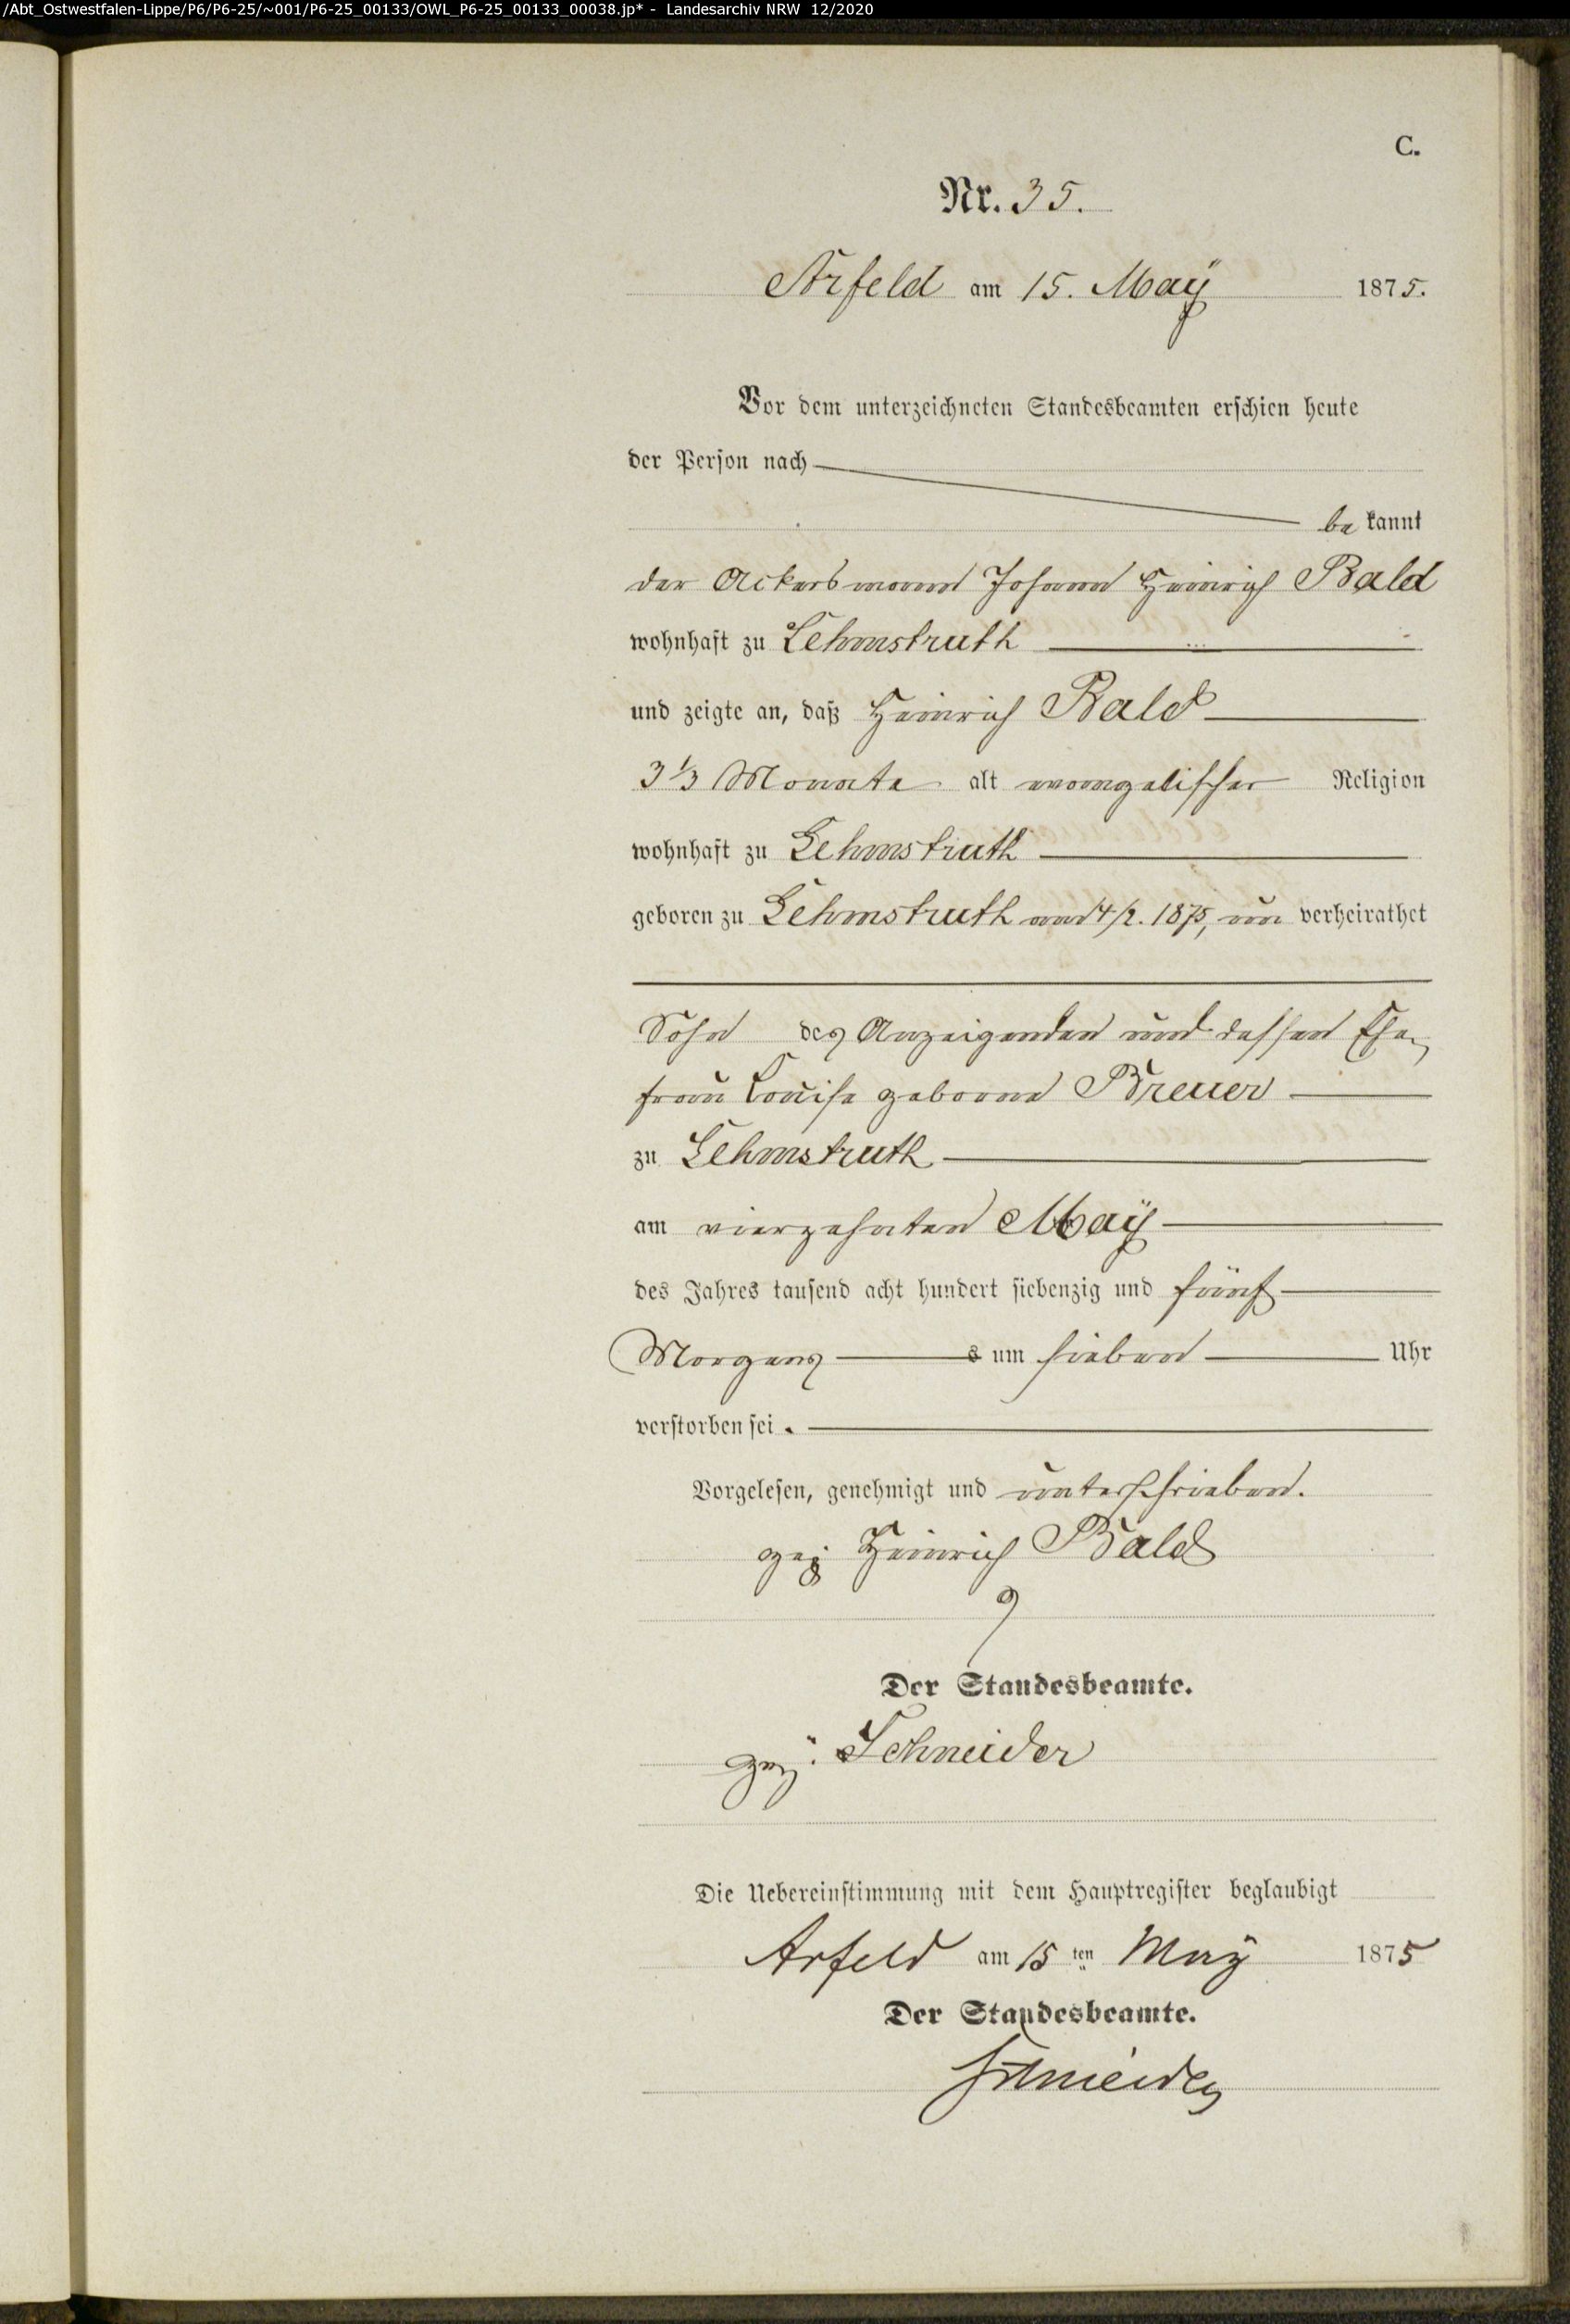 /Abt_Ostwestfalen-Lippe/P6/P6-25/~001/P6-25_00133/OWL_P6-25_00133_00038.jp* - Landesarchiv NRW 12/2020
C.
Nr. 35.
Arfeld am 15. Maÿ 1875.
Vor dem unterzeichneten Standesbeamten erschien heute
der Person nach
be kannt
der Ackersmann Johann Heinrich Bald
wohnhaft zu Lehmstruth
und zeigte an, daß Heinrich Bald
3 1/3 Monate alt evangelischer Religion
wohnhaft zu Lehmstruth
geboren zu Lehmstruth am 4/2. 1875, un verheirathet
Sohn des Anzeigenden und dessen Ehe-
frau Louise geborne Breuer
zu Lehmstruth
am vierzehnten Maÿ
des Jahres tausend acht hundert siebenzig und fünf
Morgens s um sieben Uhr
verstorben sei.
Vorgelesen, genehmigt und unterschrieben.
gez Heinrich Bald
Der Standesbeamte.
gez: Schneider
Die Uebereinstimmung mit dem Hauptregister beglaubigt
Arfeld am 15 ten Maÿ 1875
Der Standesbeamte.
Schneider